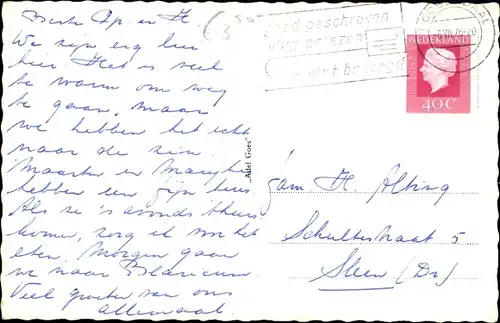 Beste Op. en H.
We zijn erg lui
hier. Het is veel
te warm om weg
te gaan, maar
we hebben het echt
naar de zin.
Maarten en Marghe
hebben een fijn huis
Als ze 's avonds thuis
komen, zorg ik voor het
eten. Morgen gaan
we naar Blaricum.
Veel groeten van ons
allemaal.
€3 50
goed geschreven
vlug gelezen
juist bezorgd
NEDERLAND
40c
"Adel Goes"
fam H. Alting
Schultestraat 5
Sleen (Dr)